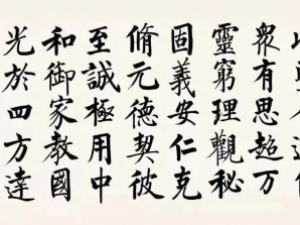 衆有思超万
靈窮理觀秘
固義安仁克
脩元德契彼
至誠極用中
和御家教國
光於四方達